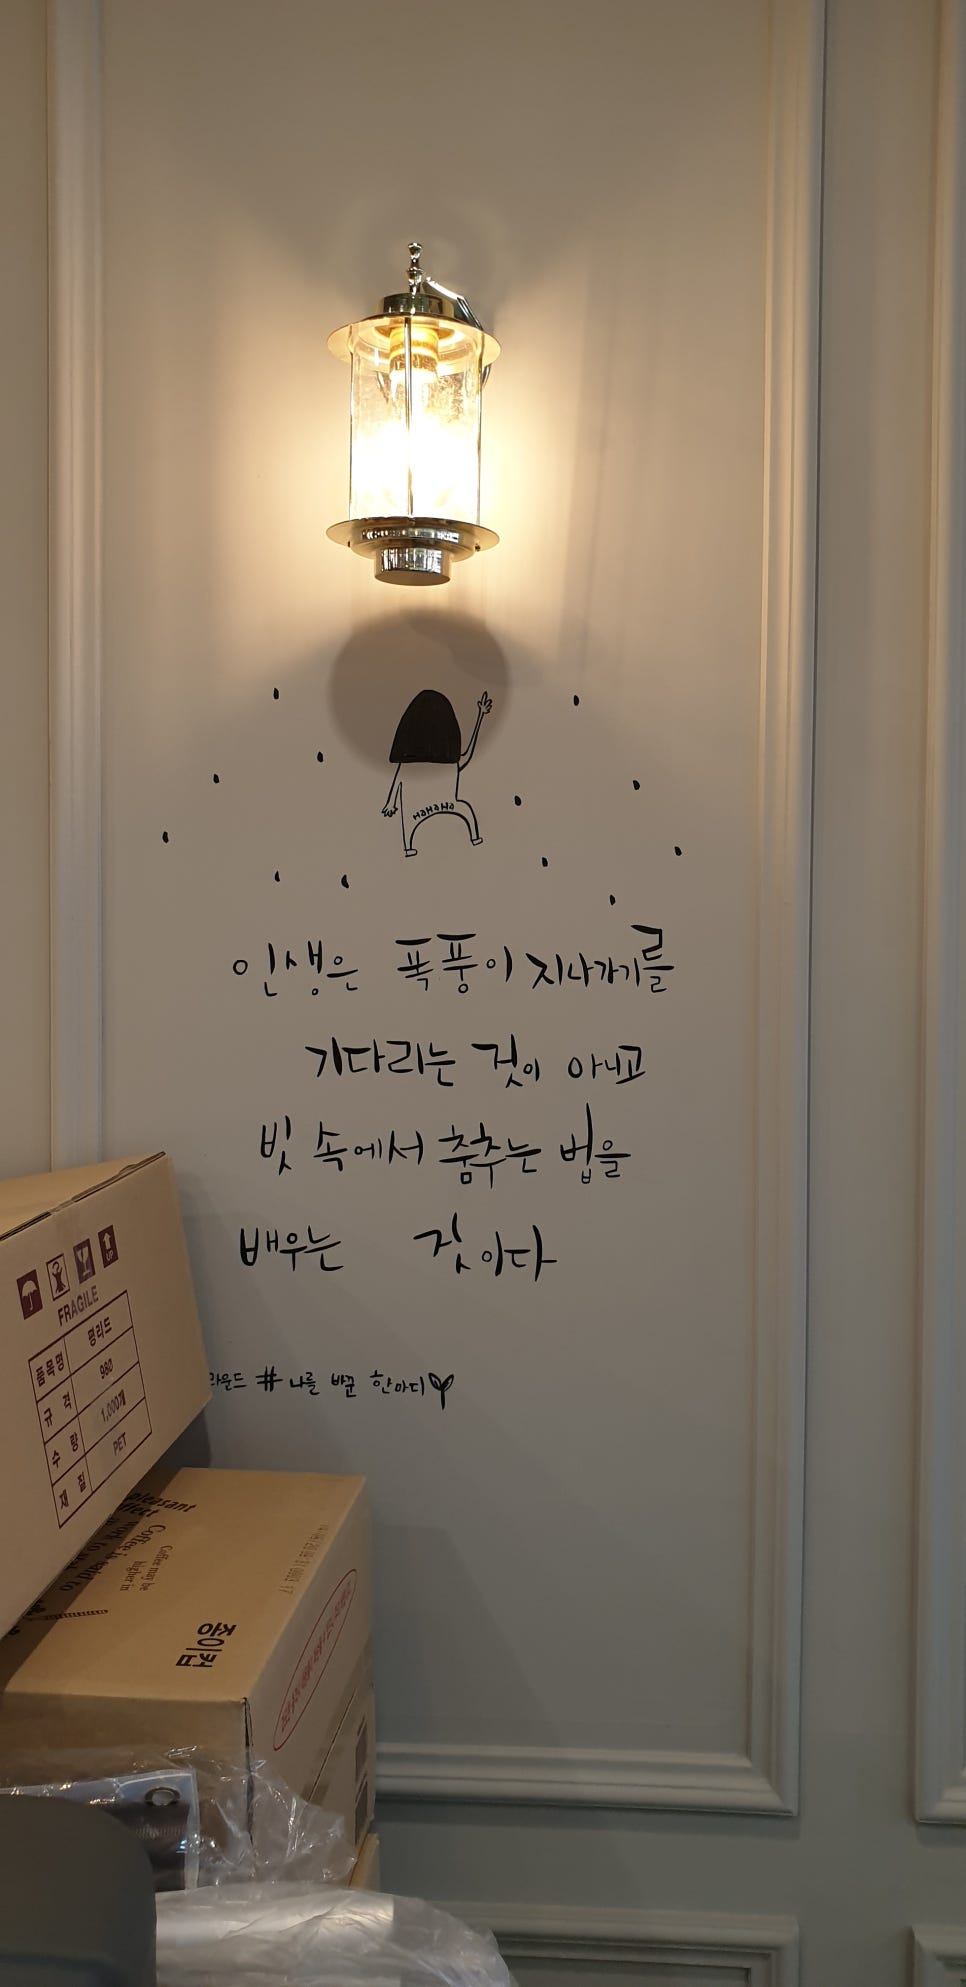 HaHaHa
인생은 폭풍이 지나가기를
기다리는 것이 아니고
빗 속에서 춤추는 법을
배우는 것이다
라운드 # 나를 바꾼 한마디
UP
FRAGILE
품목명 평리드
규격 980
수량 1,000개
재질 PET
pleasant
Coffee may be
higher in
Coffee is said to
종이컵